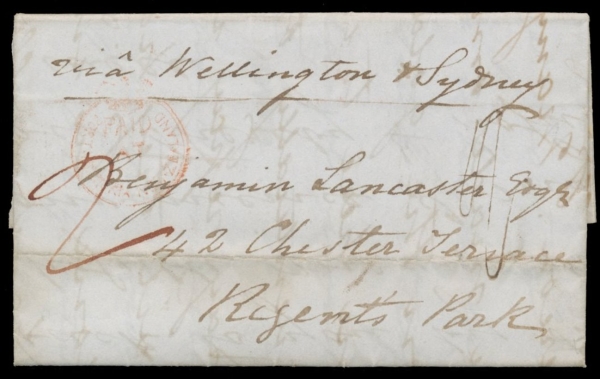 viâ Wellington & Sydney
Benjamin Lancaster Esqr
42 Chester Terrace
Regent's Park
2